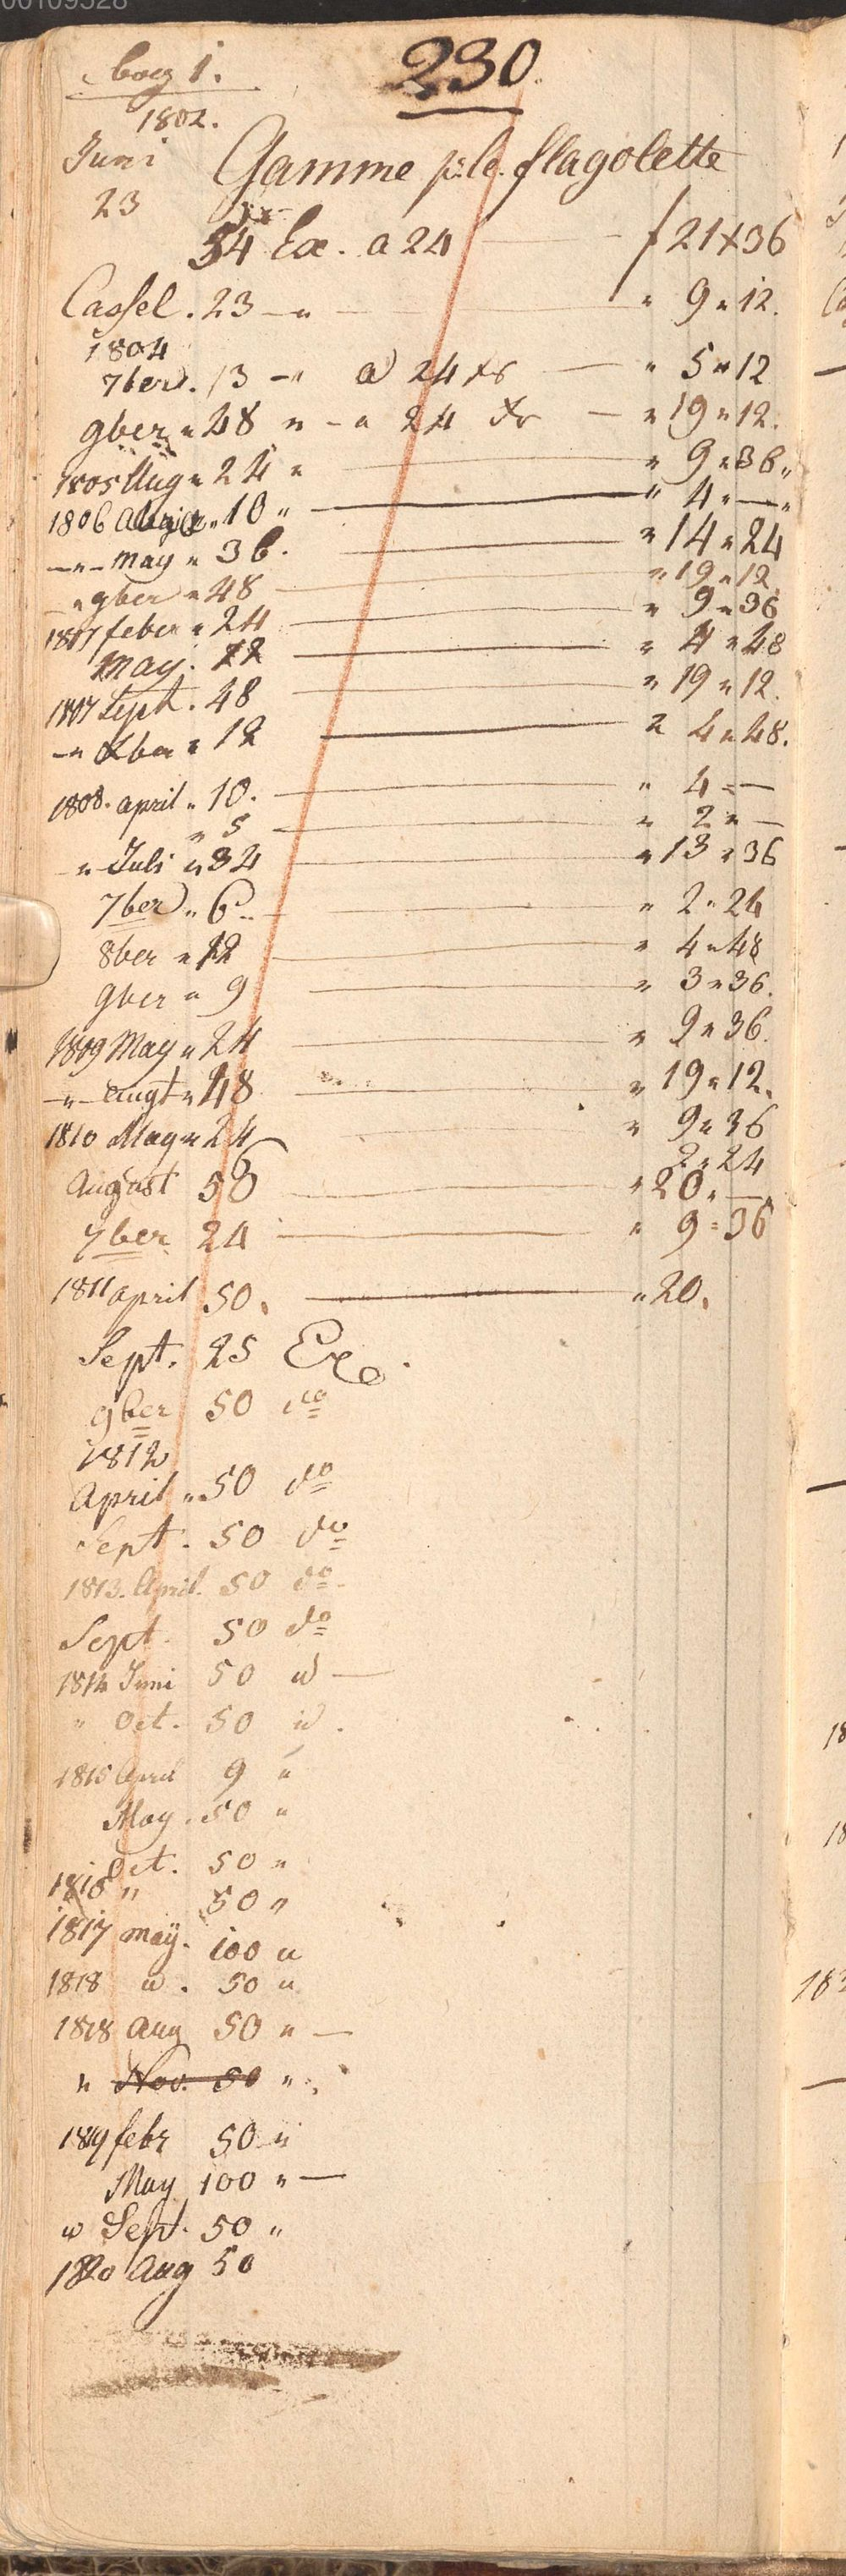 00109528
bog 1.
230.
1802.
Juni
23
Gamme p: le. flagolette
54 Ex. a 24 — f 21 x 36
Cassel. 23 — " — " 9 " 12.
1804
7ber. 13 — " a 24 xr — " 5 " 12
9ber " 48 " — " 24 xr — " 19 " 12.
1805 Aug " 24 " — " 9 " 36 "
1806 " 10 " — " 4 " — "
— " — may " 36. — " 14 " 24
— " 9ber " 48 — " 19 " 12
1807 feber " 24 — " 9 " 36
May. 12 — " 4 " 48
1807 Sept. 48 — " 19 " 12.
— " Xber " 12 — " 4 " 48.
1808. april " 10. — " 4 " —
" 5 — " 2 " —
— " Juli " 34 — " 13 " 36
7ber " 6 " — " 2 " 24
8ber " 12 — " 4 " 48
9ber " 9 — " 3 " 36.
1809 May " 24 — " 9 " 36.
— " — augt " 48 — " 19 " 12.
1810 May " 24 — " 9 " 36
6 2 " 24
August 50 — " 20 " —
7ber 24 — " 9 " 36
1811 april 50. — " 20.
Sept. 25 Ex.
9ber 50 do
1812
April " 50 do
Sept. 50 do
1813. April. 50 do
Sept. 50 do
1814 Juni 50 " —
" Oct. 50 " .
1815 April 9 "
May. 50 "
Oct. 50 "
1816 " 50 "
1817 may. 100 "
1818 " . 50 "
1818 Aug 50 " —
" Nov. 50 " .
1819 febr 50 "
May 100 " —
" Sept. 50 "
1820 Aug 50